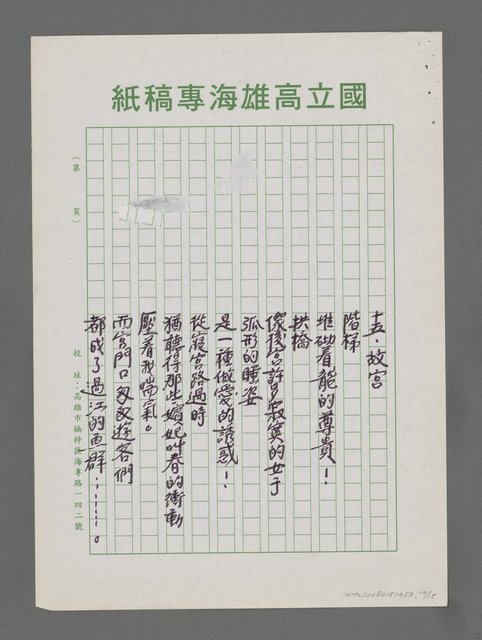 國立高雄海專稿紙
十五、故宮
階梯
堆砌着龍的尊貴！
拱橋
像後宮許多寂寞的女子
弧形的睡姿
是一種做愛的誘惑！
從寢宮路過時
猶聽得那些嬪妃叫春的衝動
壓着我喘氣。
而宮門口匆匆遊客們
都成了過江的魚群……。
（第　頁）
校址：高雄市楠梓區海專路一四二號
NML20080182056, 19/25